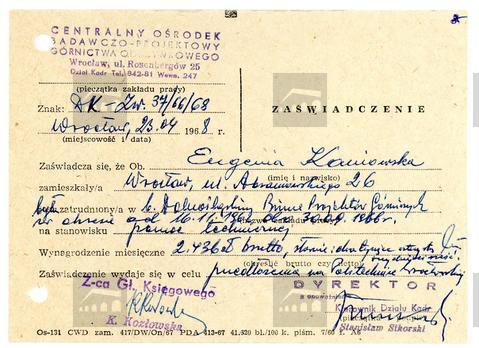 CENTRALNY OŚRODEK
BADAWCZO-PROJEKTOWY
GÓRNICTWA ODKRYWKOWEGO
Wrocław, ul. Rosenbergów 25
Dział Kadr Tel. 842-81 Wewn. 247
(pieczątka zakładu pracy)
Znak: DK-Zw. 37/66/68
Wrocław, 23.04 1968 r.
(miejscowość i data)
ZAŚWIADCZENIE
Zaświadcza się, że Ob. Eugenia Kaniowska
(imię i nazwisko)
zamieszkały/a Wrocław, ul. Abramowskiego 26
była zatrudniony/a w b. Dolnośląskim Biurze Projektów Górniczych
w okresie od 16.11. do 30.04.1966r.
na stanowisku pomoc techniczna
Wynagrodzenie miesięczne 2.436 zł brutto, słownie: dwa tysiące
(określić brutto czy netto)
Zaświadczenie wydaje się w celu przedłożenia na Politechnice Wrocławskiej
Z-ca Gł. Księgowego
K. Kozłowska
DYREKTOR
z upoważnienia
Kierownik Działu Kadr
Stanisław Sikorski
Os-131 CWD zam. 417/DW/On/67 PDA 413-67 41.820 bl./100 k. piśm. 7/60 f. A6